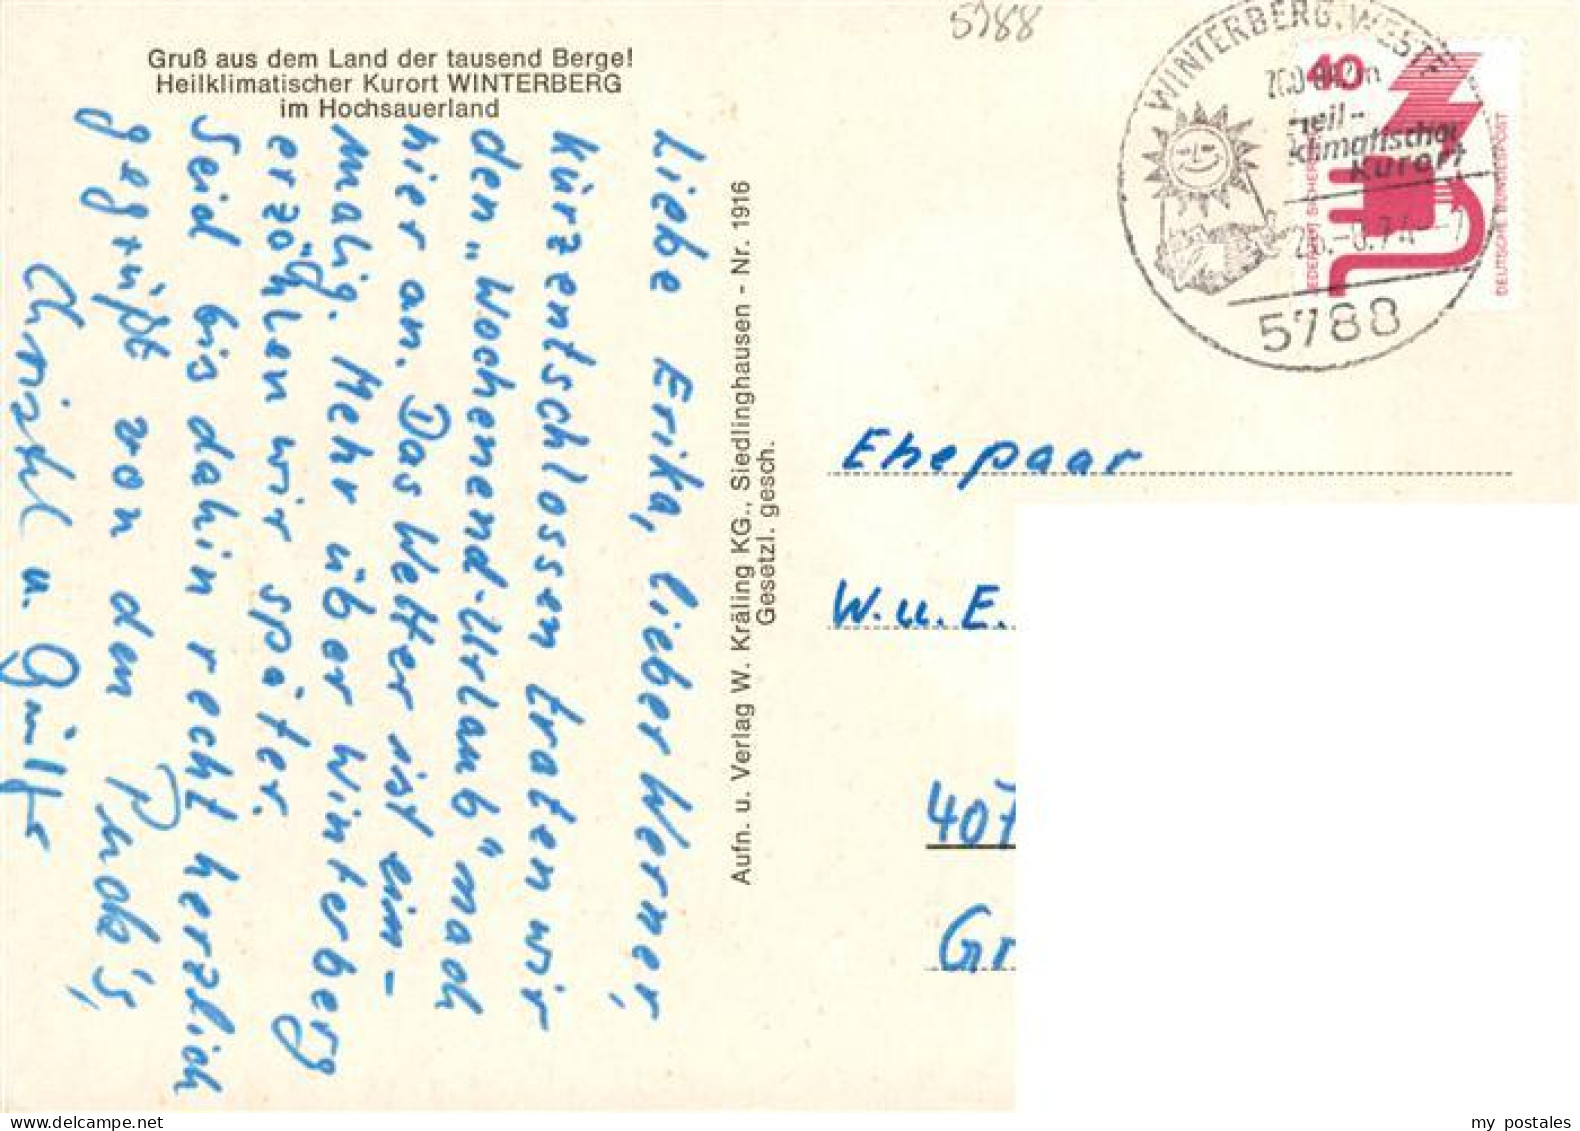 5788
Gruß aus dem Land der tausend Berge!
Heilklimatischer Kurort WINTERBERG
im Hochsauerland
Liebe Erika, lieber Werner,
kürzentschlossen traten wir
den „Wochenend-Urlaub" nach
hier an. Das Wetter ist ein-
malig. Mehr über Winterberg
erzählen wir später.
Seid bis dahin recht herzlich
gegrüßt von den
Christel u. Günter
Aufn. u. Verlag W. Kräling KG., Siedlinghausen - Nr. 1916
Gesetzl. gesch.
WINTERBERG, WESTF
Heil-
klimatischer
Kurort
5788
40
DEUTSCHE BUNDESPOST
Ehepaar
W. u. E.
40
Gr
my postales